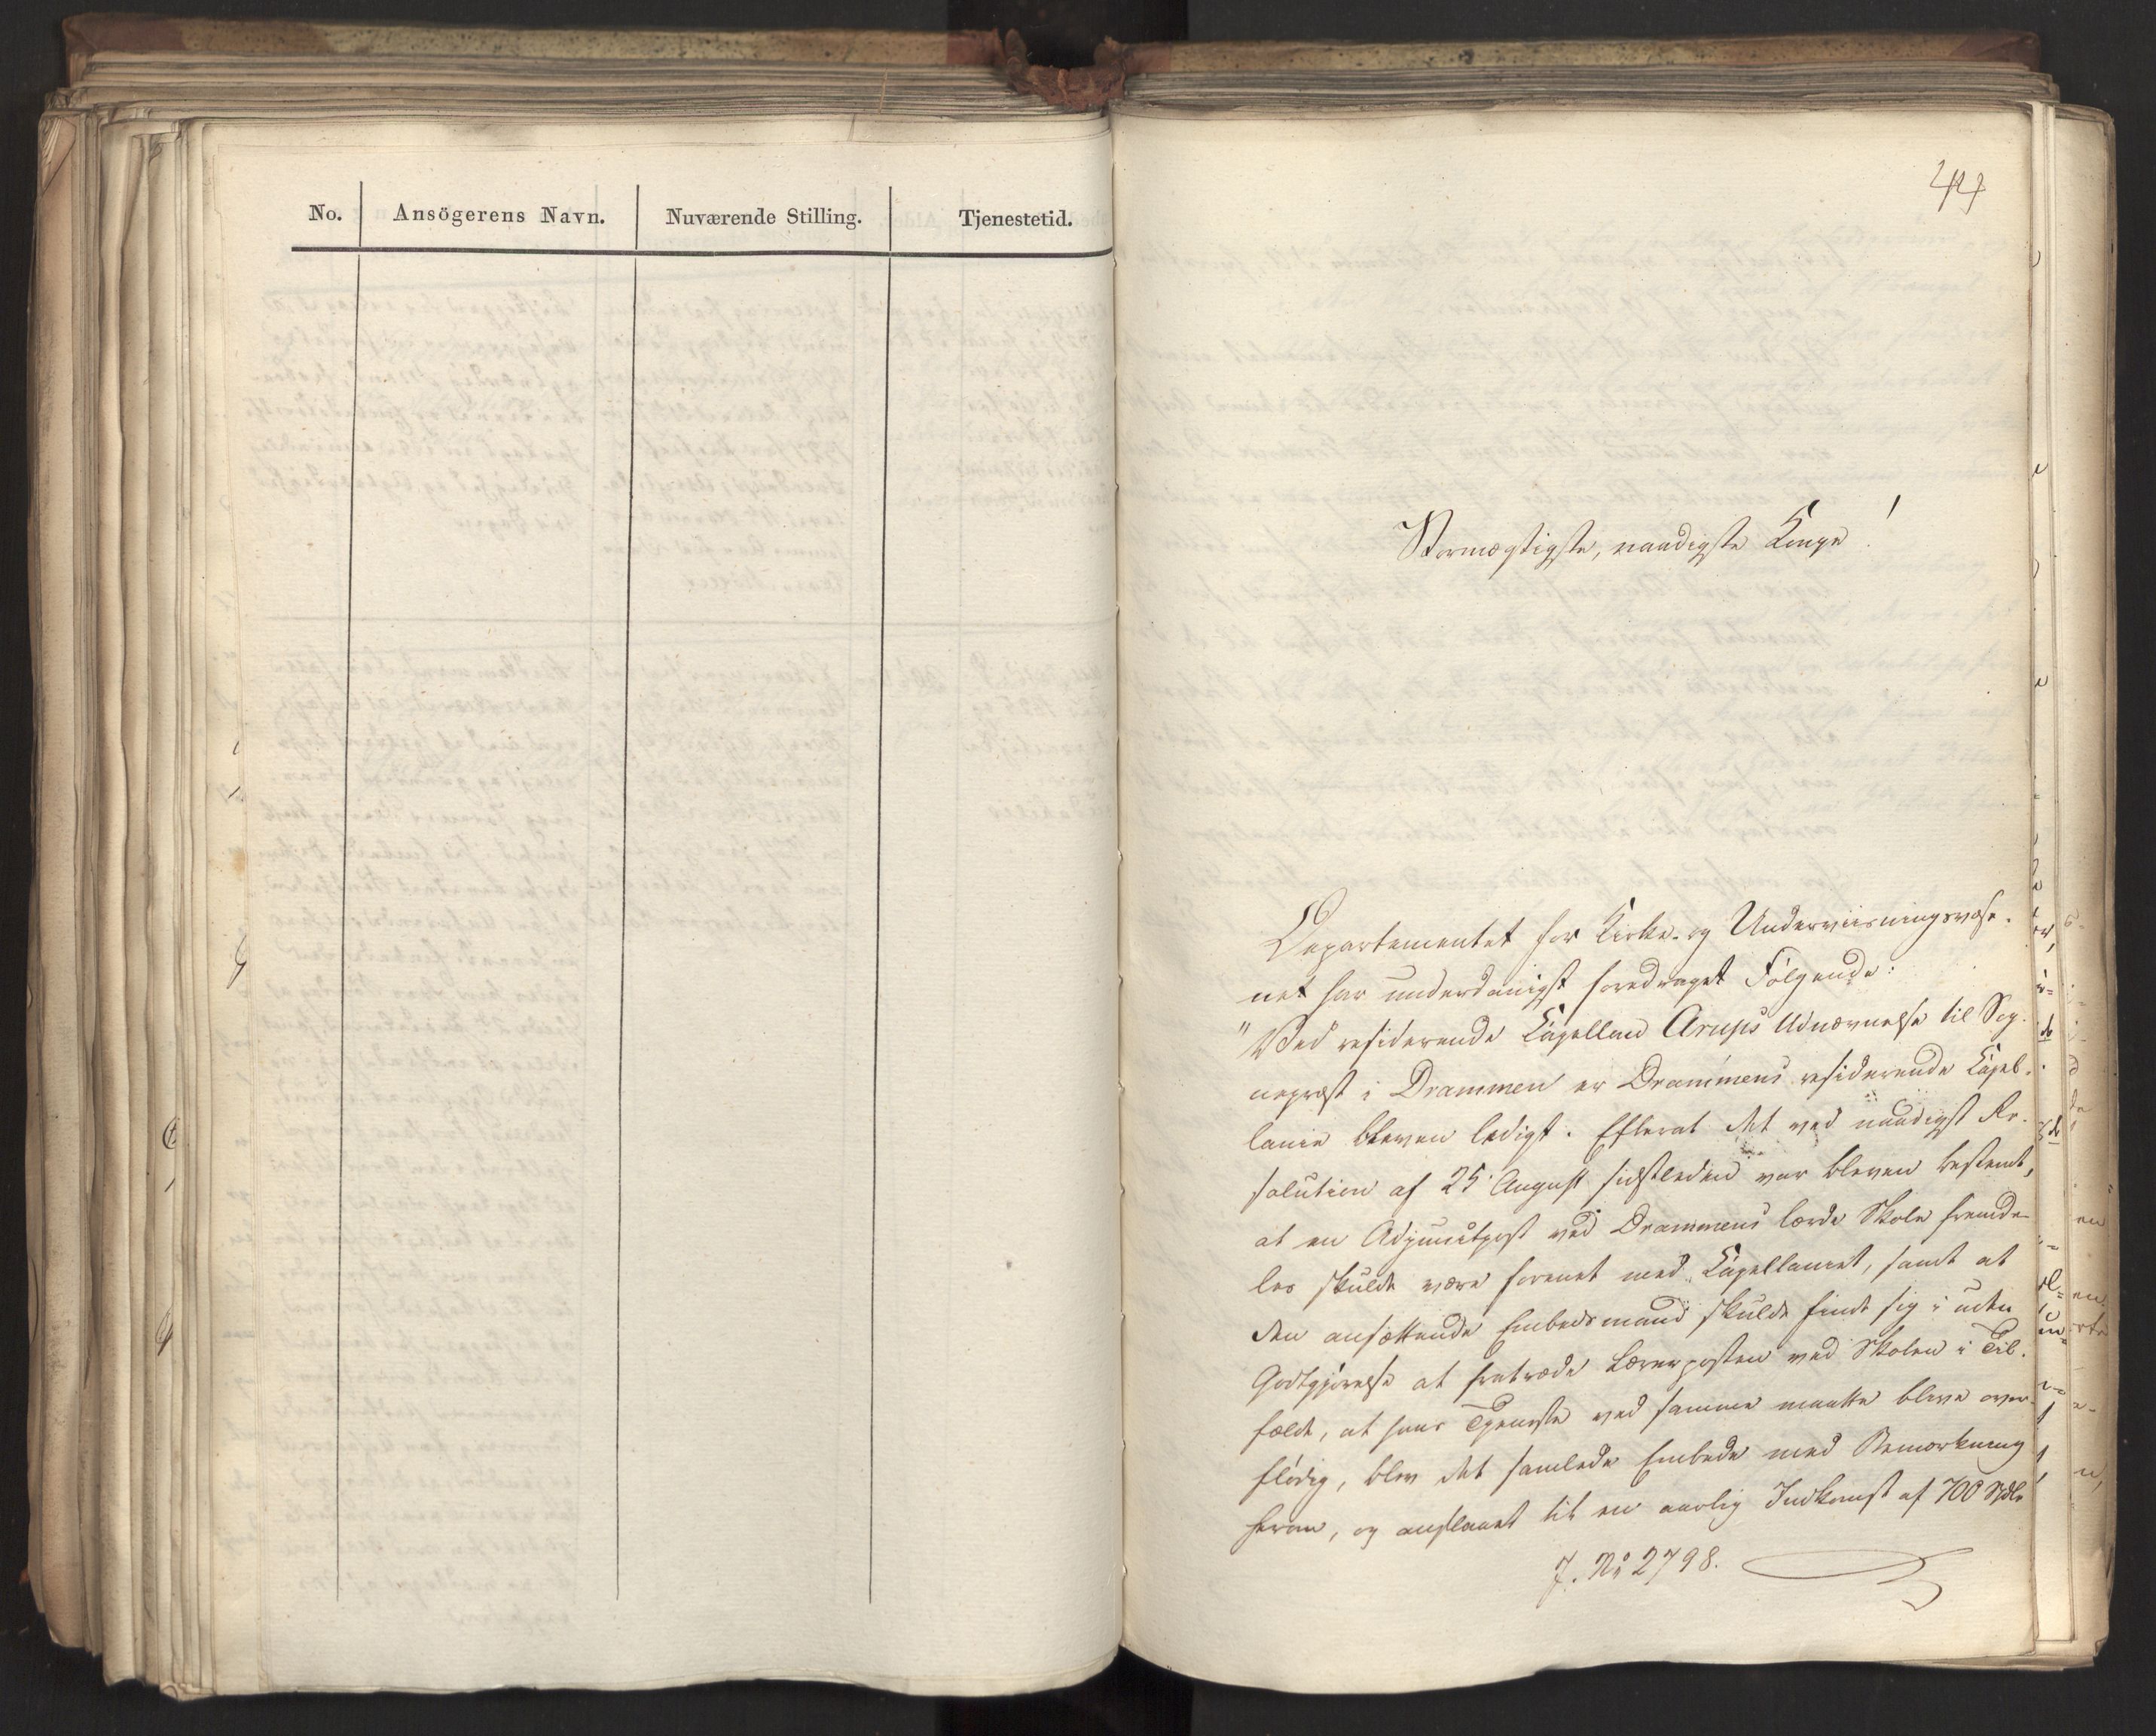 No. Ansögerens Navn. Nuværende Stilling. Tjenestetid.
Stormægtigste, naadigste Konge!
Departementet for Kirke- og Underviisningsvæse-
net har underdanigst foredraget Følgende:
"Ved residerende Capellan Arups Udnævnelse til Sog-
nepræst i Drammen er Drammens residerende Capel-
lanie bleven ledigt. Efterat det ved naadigst Re-
solution af 25 August sidstleden var bleven bestemt,
at en Adjunctpost ved Drammens lærde Skole fremde-
les skulde være forenet med Capellaniet, samt at
den ansættende Embedsmand skulde finde sig i uden
Godtgjørelse at fratræde Lærerposten ved Skolen i Til-
fælde, at hans Tjeneste ved samme maatte blive over-
flødig, blev det samlede Embede med Bemærkning
herom, og anslaaet til en aarlig Indkomst af 700 Spdlr
J. No 2798.